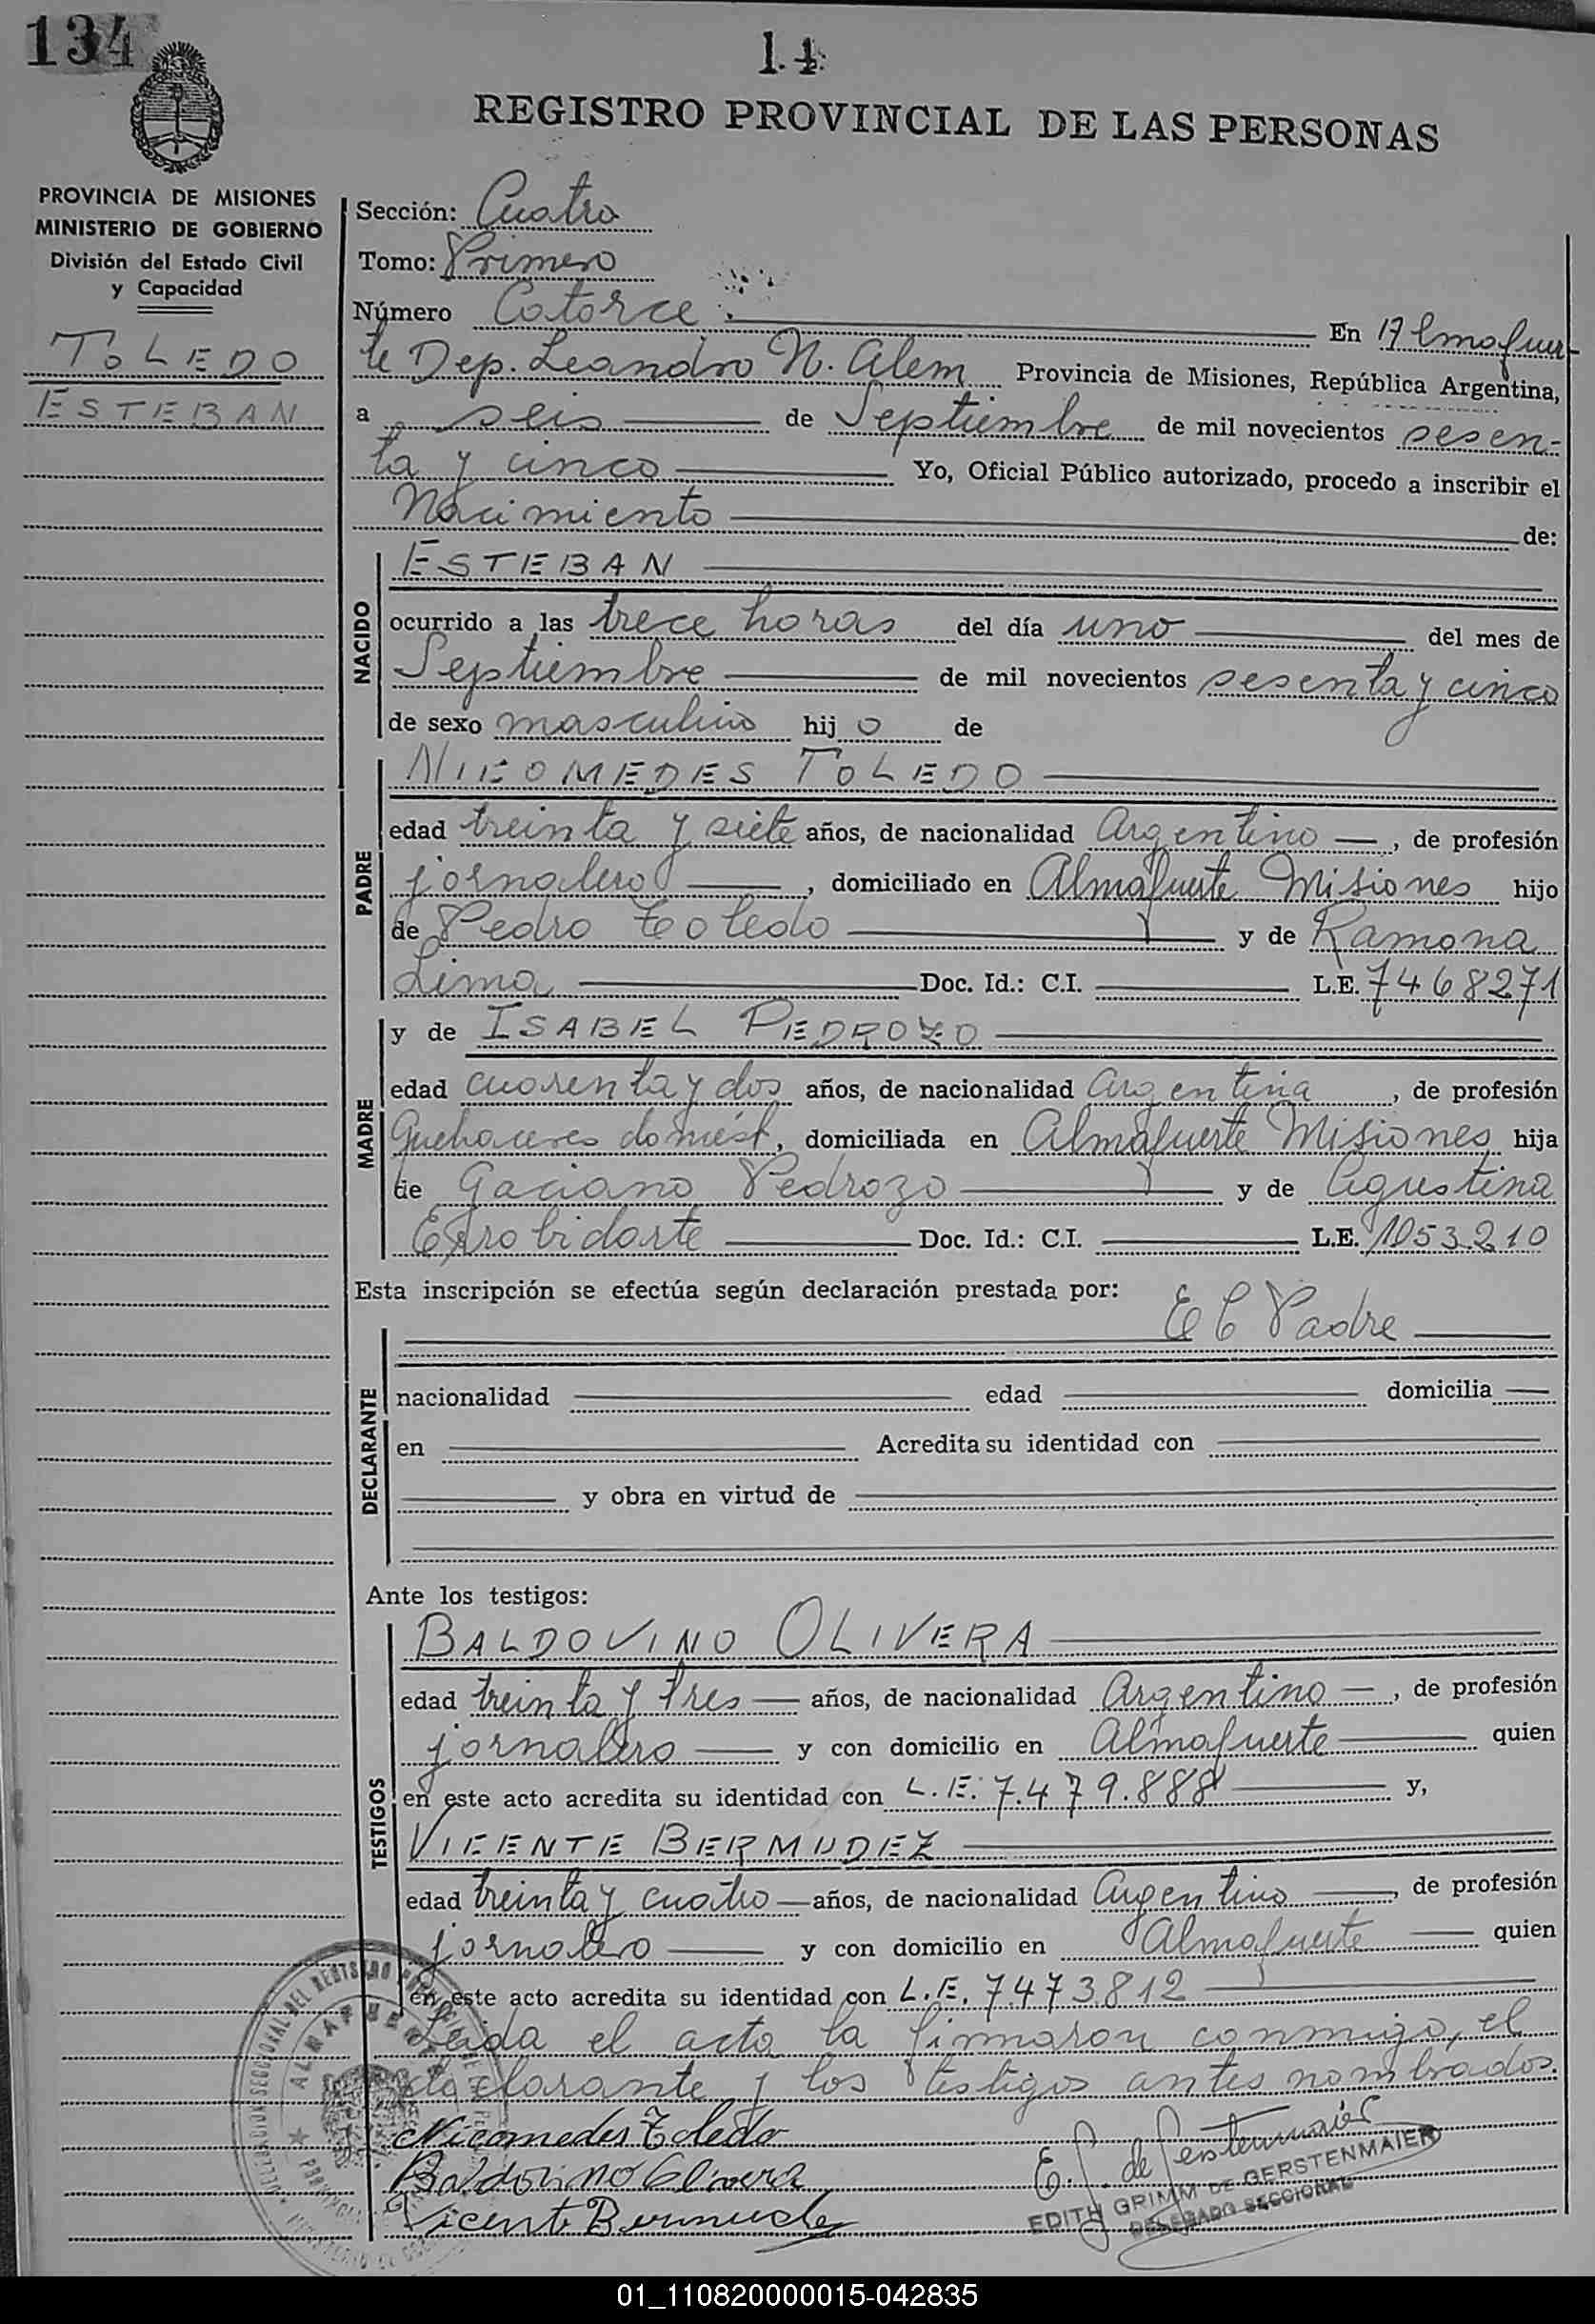 134
14
REGISTRO PROVINCIAL DE LAS PERSONAS
PROVINCIA DE MISIONES
MINISTERIO DE GOBIERNO
División del Estado Civil
y Capacidad
TOLEDO
ESTEBAN
Sección: Cuatro
Tomo: Primero
Número Catorce En Almafuer-
te Dep. Leandro N. Alem Provincia de Misiones, República Argentina,
a seis de Septiembre de mil novecientos sesen-
ta y cinco Yo, Oficial Público autorizado, procedo a inscribir el
Nacimiento de:
NACIDO
ESTEBAN
ocurrido a las trece horas del día uno del mes de
Septiembre de mil novecientos sesenta y cinco
de sexo masculino hijo de
PADRE
NICOMEDES TOLEDO
edad treinta y siete años, de nacionalidad Argentino, de profesión
jornalero, domiciliado en Almafuerte Misiones hijo
de Pedro Toledo y de Ramona
Lima Doc. Id.: C.I. L.E. 7468271
MADRE
y de ISABEL PEDROZO
edad cuarenta y dos años, de nacionalidad Argentina, de profesión
Quehaceres domést, domiciliada en Almafuerte Misiones hija
de Gaciano Pedrozo y de Agustina
Errobidarte Doc. Id.: C.I. L.E. 1053.210
Esta inscripción se efectúa según declaración prestada por: El Padre
DECLARANTE
nacionalidad edad domicilia
en Acredita su identidad con
y obra en virtud de
Ante los testigos:
TESTIGOS
BALDOVINO OLIVERA
edad treinta y tres años, de nacionalidad Argentino, de profesión
jornalero y con domicilio en Almafuerte quien
en este acto acredita su identidad con L.E. 7.479.888 y,
VICENTE BERMUDEZ
edad treinta y cuatro años, de nacionalidad Argentino, de profesión
jornalero y con domicilio en Almafuerte quien
en este acto acredita su identidad con L.E. 7.473812
Leida el acta la firmaron conmigo, el
declarante y los testigos antes nombrados.
Nicomedes Toledo
Baldovino Olivera
Vicente Bermudez
E. G. de Gerstenmaier
EDITH GRIMM DE GERSTENMAIER
DELEGADO SECCIONAL
01_110820000015-042835